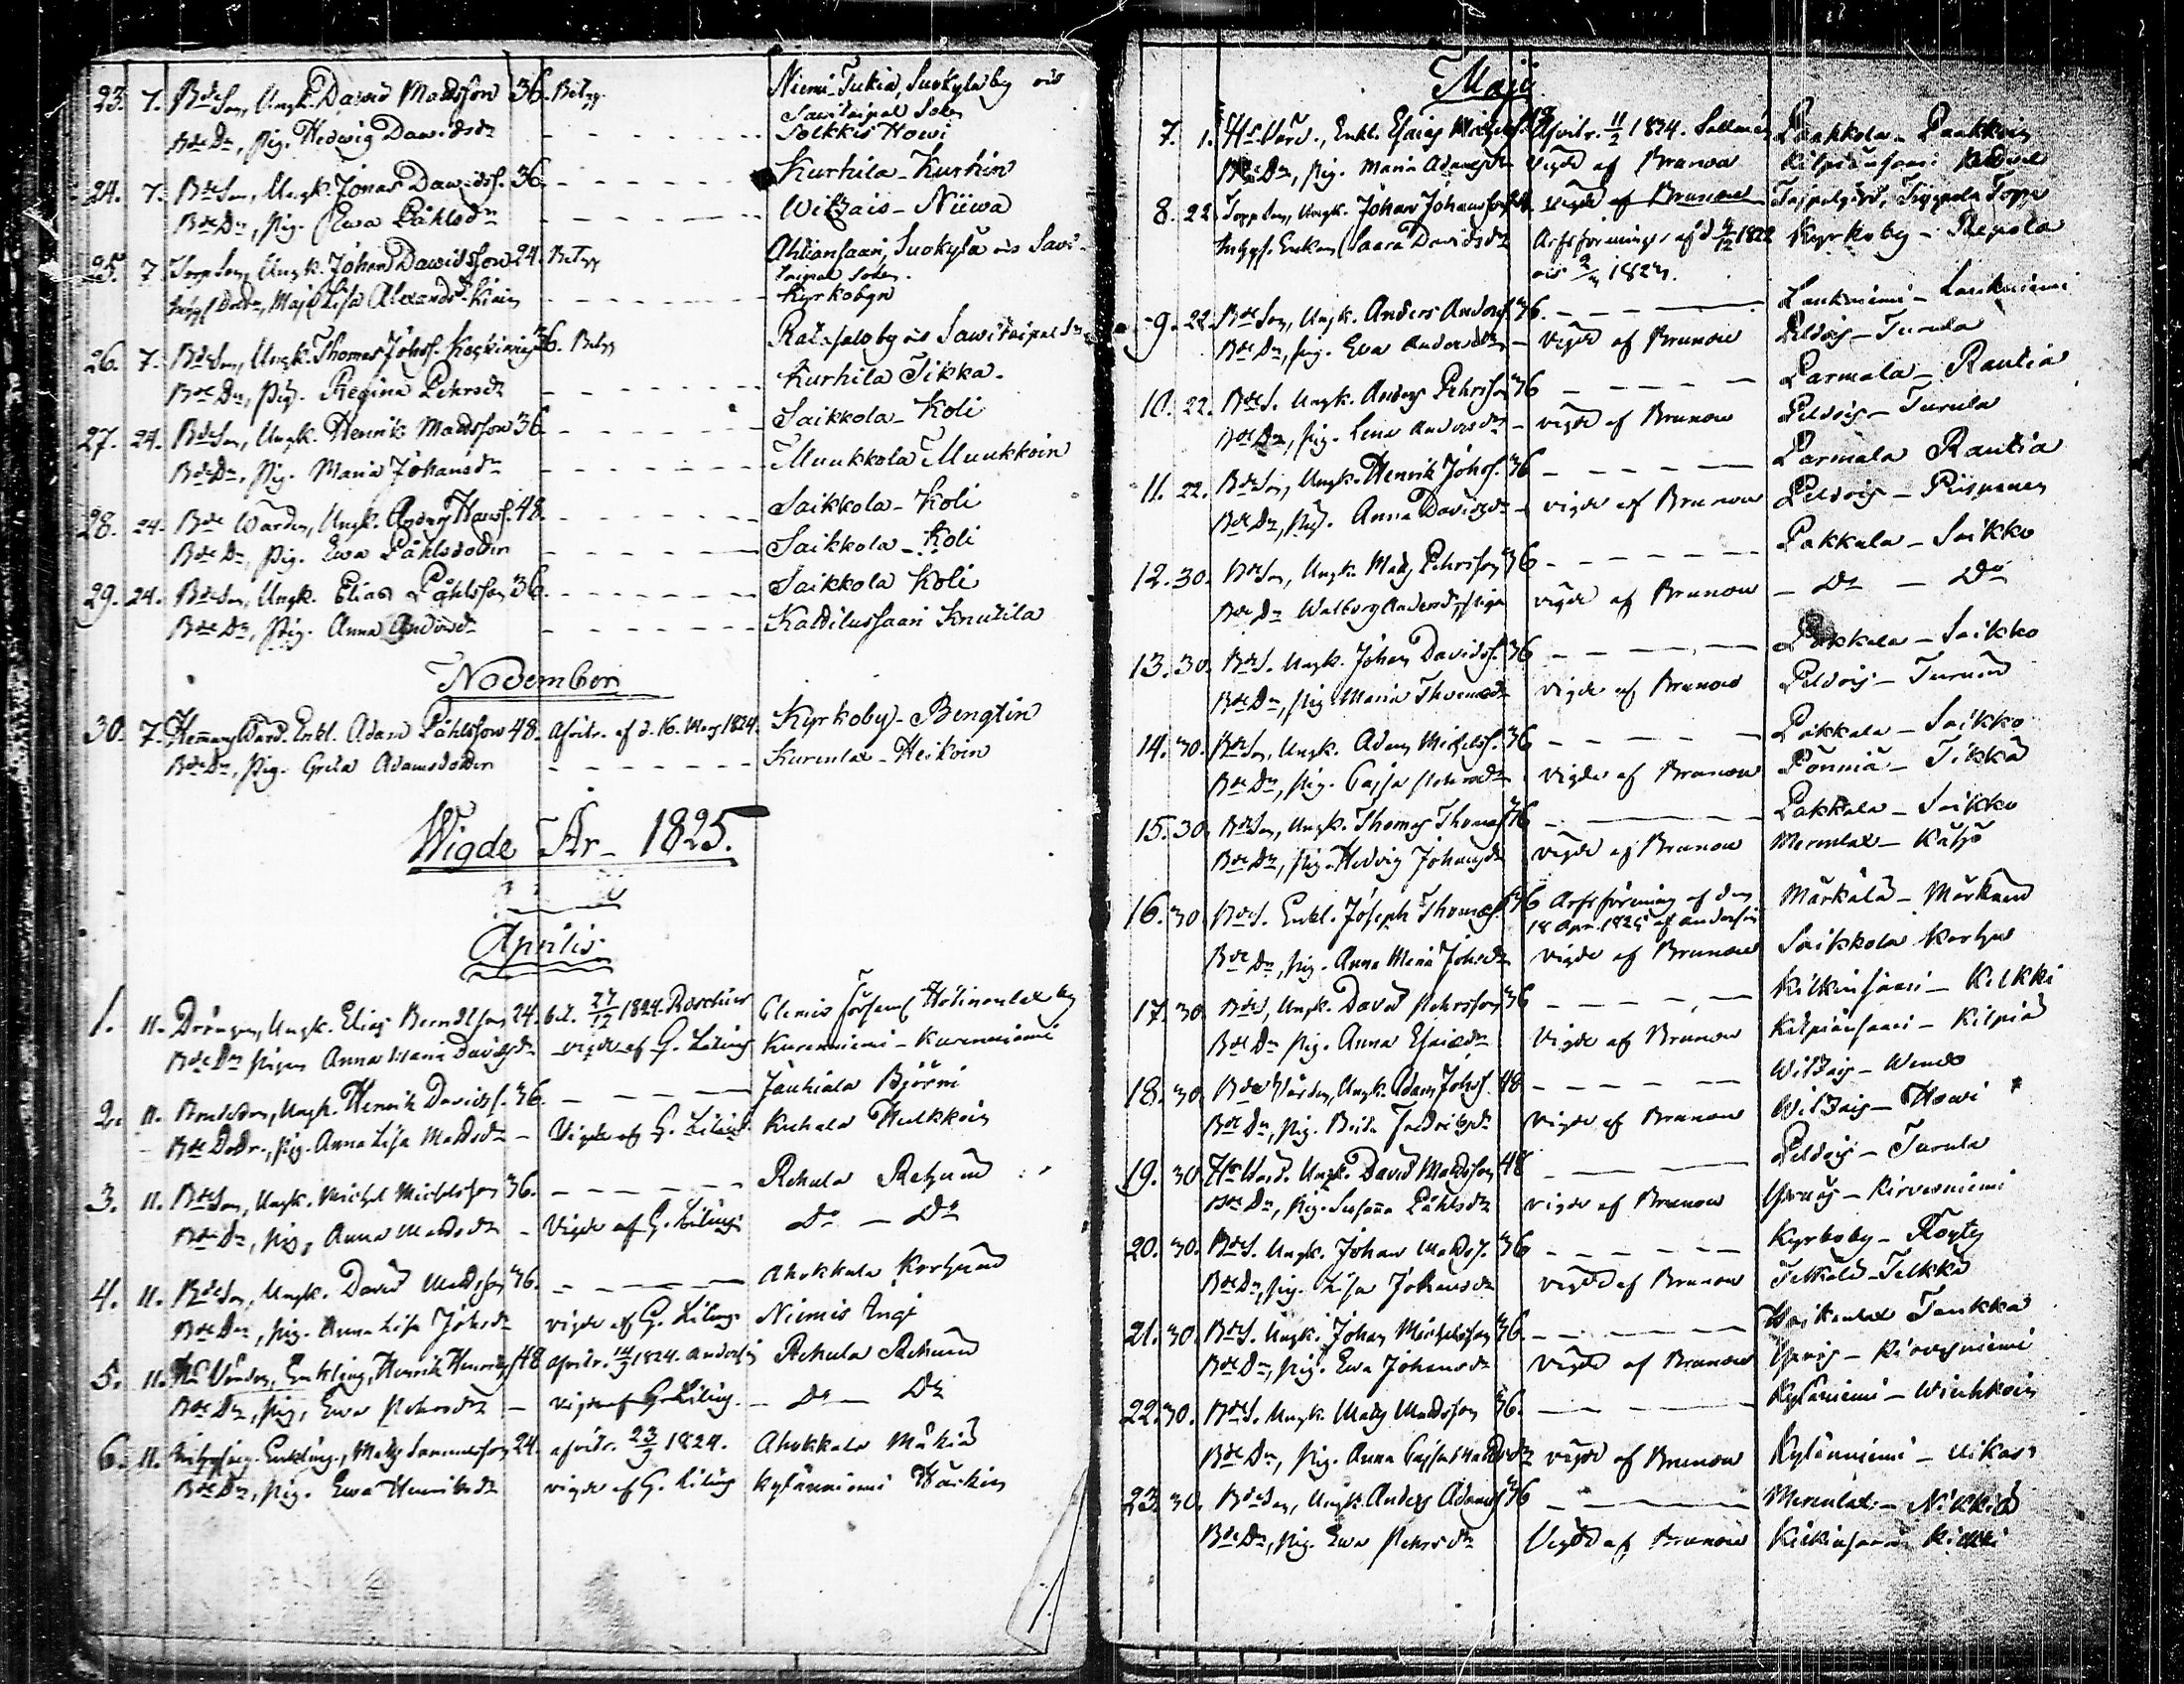 23. 7. BdeSon, Ungk. David Madsson 36. Betyg. Niemi-Tukia, Suokyla by
Savitaipal Sokn
BdeDr, Pig. Hedwig Davidsdr - - - - - - - Solkkis Howi
24. 7. BdeSon, Ungk. Jonas Davidss. 36 - - - - - - Kurhila - Kurhin
BdeDr, Pig. Ewa Påhlsdr - - - - - - - Witzais - Niiwa
25. 7 TorpSon, Ungk. Johan Davidsson 24. Betyg Ahtiansaari, Suokyla Savi-
taipal Sokn.
Lisa Alexandsdr - - - - - - - Kyrkobyn
26. 7. BdeSon, Ungk. Thomas Johss. 36. Betyg by Savitaipal Sn
BdeDr, Pig. Regina Pehrsdr - - - - - - Kurhila Tikka.
27. 24. BdeSon, Ungk. Henrik Madsson 36 - - - - - - Saikkola - Koli
BdeDr, Pig. Maria Johansdr - - - - - - - Muukkola Muukkoin
28. 24. Bde Warden, Ungk. Anders Hanss. 48 - - - - - - Saikkola - Koli
BdeDr, Pig. Ewa Påhlsdotter - - - - - - Saikkola - Koli
29. 24. BdeSon, Ungk. Elias Påhlsson 36. - - - - - - Saikkola Koli
BdeDr, Pig. Anna Andersdr - - - - - - Kattilussaari Knutila
November
30. 7. Hemmans Wärd. Enkl. Adam Påhlsson 48. Afvitr. af d. 16. Maj 1824. Kyrkoby - Bengtin
BdeDr, Pig. Greta Adamsdotter - - - - - - - Kurenlax - Heikoin
Wigde År - 1825.
Aprilis.
1. 11. Drängen, Ungk. Elias Berndtson 24. bet. 27/12 1824. Clemis
BdeDr Pigan Anna Maria Davidsdr vigde af G. Kurenniemi - Kurenniemi
2. 11. BondeSon, Ungk. Henrik Davidss. 36. - - - - - Jänhiälä Björni
Bde Dotr., Pig. Anna Lisa Madsdr - Vigde af G. Kuhala Hulkkoin
3. 11. BdeSon, Ungk. Michel Michelsson 36. - - - - - - Rehula Rehund
BdeDr, Pig. Anna Madsdr - Vigde af G. Do - Do
4. 11. BdeSon, Ungk. David Madsson 36. - - - - - Ahokkala Korhund
BdeDr, Pig. Anna Lisa Johsdr vigde af G. Niemis Ingi
5. 11. Hs Värden, Enkling, Henrik Henrikss 48 afvitr. 1824. Rehula Rehund
BdeDr, Pig. Ewa Pehrsdr - vigde af G. - Do - Do
6. 11. Enkling, Mats Samuelsson 24. afvitr. 23/2 1824. Ahokkala Mükiä
BdeDr, Pig. Ewa Henriksdr vigde af G. Kylänniemi Härkin
Maji
7. 1. Hs Värd., Enkl. Esaias 48 Afvitr. 11/2 1824. Paakkola - Paakkoin
BdeDr, Pig. Maria Adamsdr vigde af Brunow Kilpiänsaari
8. 22 TorpSon, Ungk. Johan Johansson vigde af Brunow Torp
Enkan Saara Davidsdr Arfsförening af d. 1822 Kyrkoby - Repola
1824.
9. 22. BdeSon, Ungk. Anders Anderss 36. - - - - - Laukniemi - Laukniemi
BdeDr, Pig. Ewa Andersdr - vigde af Brunow Peldois - Turula
10. 22. BdeS. Ungk. Anders Pehrsson 36 - - - - - Parmala - Rautia
BdeDr, Pig. Lena Andersdr - vigde af Brunow Peldois - Turula
11. 22. BdeSon, Ungk. Henrik Johss. 36 - - - - - Parmala Rautia
BdeDr, Pig. Anna Davidsdr - vigde af Brunow Peldois - Piispanen
12. 30. BdeSon, Ungk. Mats Pehrsson 36 - - - - - - Pakkala - Saikko
BdeDr Walborg Andersdr, Piga vigde af Brunow - Do - Do
13. 30. BdeS. Ungk. Johan Davidss. 36 - - - - - Pakkala - Saikko
BdeDr, Pig. Maria Thomasdr vigde af Brunow Peldois - Turund
14. 30. BdeSon, Ungk. Adam Michelss. 36 - - - - - Pakkala - Saikko
BdeDr, Pig. Cajsa Pehrsdr vigde af Brunow Pönniä - Tikkä
15. 30. BdeSon, Ungk. Thomas Thomass 36 - - - Pakkala - Saikko
BdeDr, Pig. Hedvig Johansdr vigde af Brunow Merenlax - Kätzö
16. 30 BdeS. Enkl. Joseph Thomass. 36 Arfsförening af den Märkälä - Märkänd
18 Apr. 1825
BdeDr, Pig. Anna Maria Johsdr vigde af Brunow Saikkola Korhus
17. 30 BdeS, Ungk. David Pehrsson 36 - - - - - Kilkinsaari - Kilkki
BdeDr Pig. Anna Esaiedr Vigde af Brunow Kilpiänsaari - Kilpiä
18. 30 Bde Värden, Ungk. Adam Johss. 48 - - - - - Witzais -
BdeDr, Pig. Beata Fredriksdr vigde af Brunow Witzais - Howi
19. 30 Hs Värd. Ungk. David Madsson 48 - - - Peldois - Turula
BdeDr, Pig. Susanna Påhlsdr vigde af Brunow - Kirvesniemi
20. 30. BdeS. Ungk. Johan Madss. 36 - - - - - - Kyrkoby -
BdeDr, Pig. Lisa Johansdr vigde af Brunow Telkkälä - Telkkä
21. 30. BdeS. Ungk. Johan Michelsson 36. - - - - - Tuukka
BdeDr, Pig. Ewa Johansdr vigde af Brunow - Kirvesniemi
22. 30. BdeS. Ungk. Mats Madsson 36. - - - Kylänniemi -
BdeDr, Pig. Anna Cajsa Madsdr vigde af Brunow Kylänniemi -
23. 30. BdeSon, Ungk. Anders Adamss 36 - - - Merenlax - Nikkilä
BdeDr, Pig. Ewa Pehrsdr Vigde af Brunow Kilkinsaari Kilkki